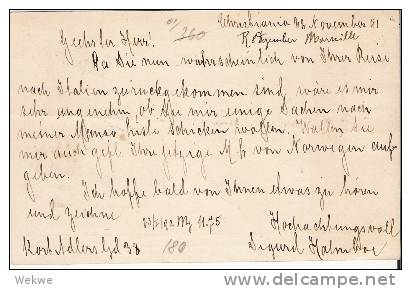 Christiania 23 November 81
260
Geehrter Herr!
Da Sie nun wahrscheinlich von Ihrer Reise
nach Italien zurückgekommen sind, wäre es mir
sehr angenehm, ob Sie mir einige Sachen nach
meiner liste Schicken wollen. Wollen Sie
mir auch gefl. Ihre jetzige von Norwegen auf-
geben.
Ich hoffe bald von Ihnen etwas zu hören
und zeichne
Hochachtungsvoll
Sigurd
38
180
Wekwe
delcampe.net